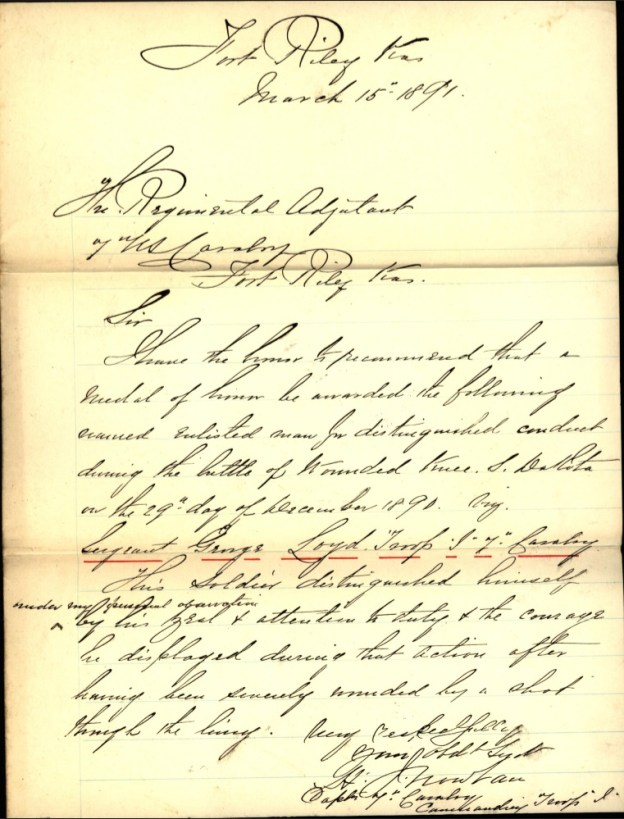 Fort Riley Kas
March 15" 1891.
The Regimental Adjutant
7" US Cavalry
Fort Riley Kas.
Sir
I have the honor to recommend that a
medal of honor be awarded the following
named enlisted man for distinguished conduct
during the battle of Wounded Knee. S. Dakota
on the 29" day of December 1890. viz.
Sergeant George Loyd Troop "I" 7" Cavalry
This soldier distinguished himself
under my personal observation
by his zeal & attention to duty & the courage
he displayed during that action after
having been severely wounded by a shot
through the lung. Very respectfully
Your obdt Svt
H. J. Nowlan
Capt. 7" Cavalry
Commanding Troop "I"